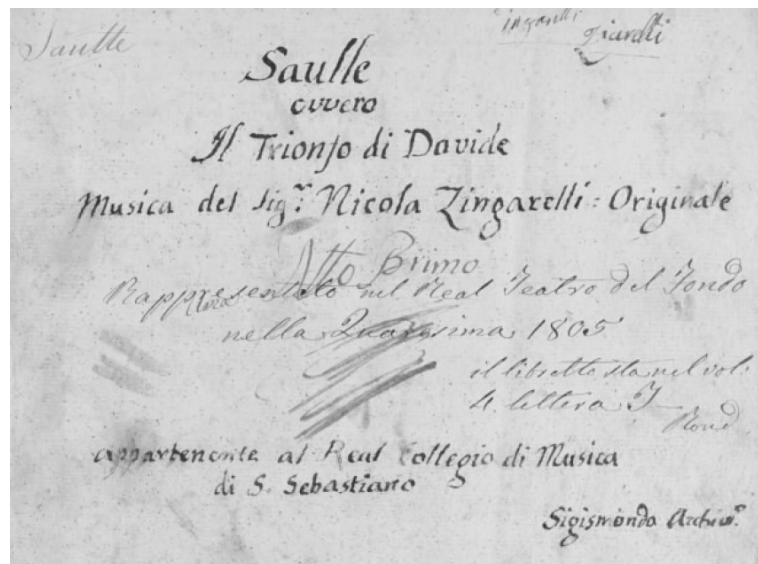 Saulle
Zingarelli
Saulle
ovvero
Il Trionfo di Davide
Musica del Sig.r Nicola Zingarelli: Originale
Atto Primo
Rappresentato nel Real Teatro del Fondo
nella Quaresima 1805
il libretto sta nel vol:
4. lettera
appartenente al Real Collegio di Musica
di S. Sebastiano
Sigismondo Archiv.o